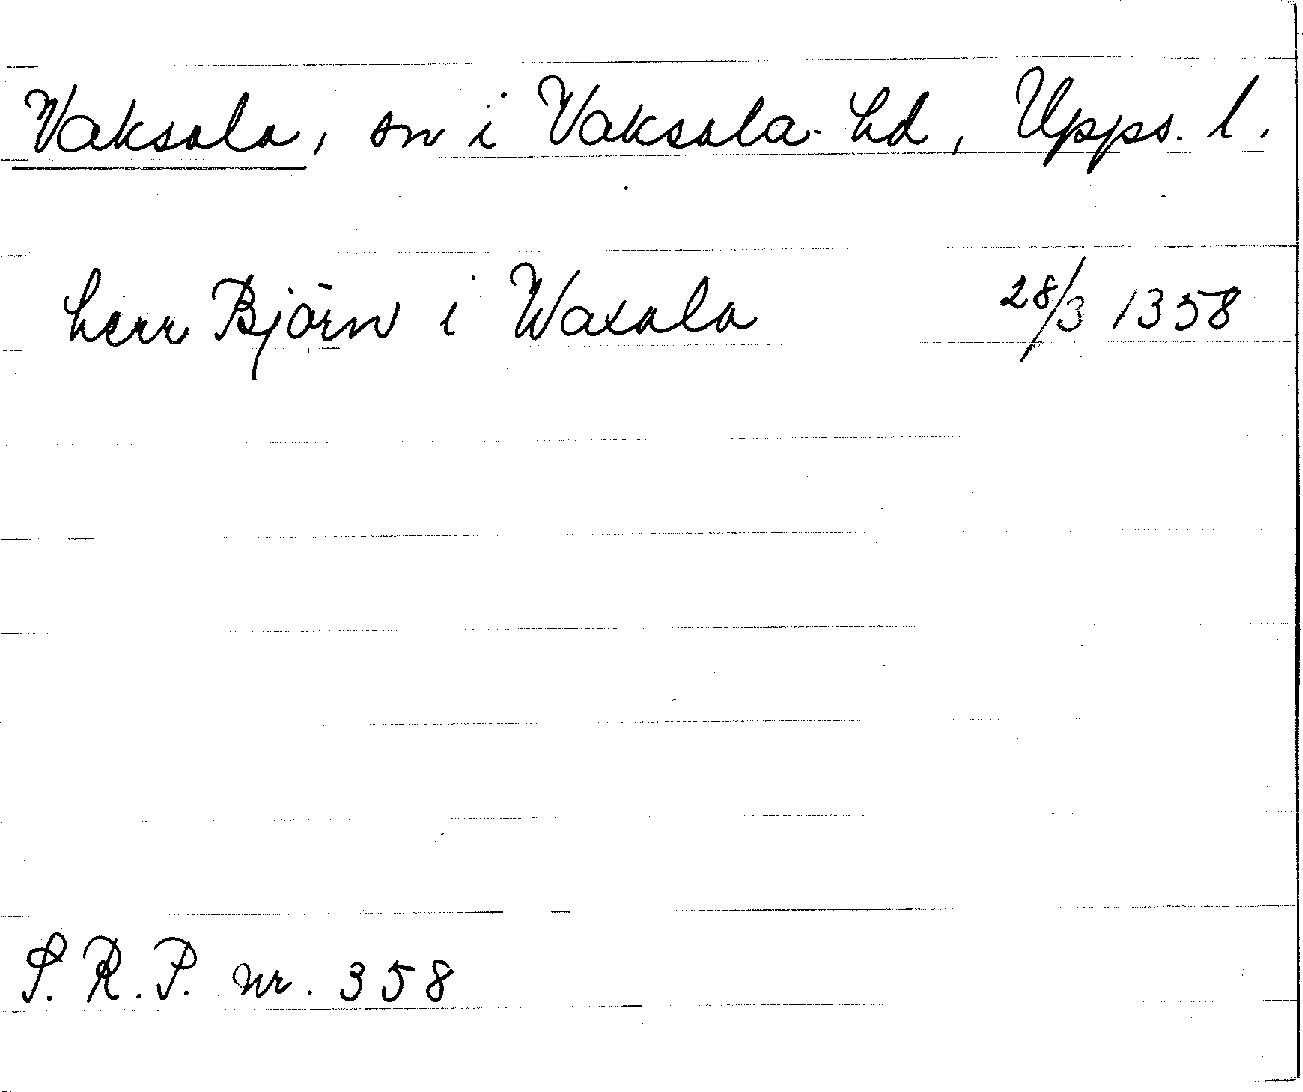 Vaksala, sn i Vaksala hd, Upps. l.
herr Björn i Waxala 28/3 1358
S. R. P. nr. 358